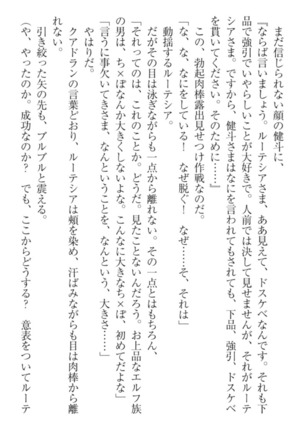 まだ信じられない顔の健斗に、
『ならば言いましょう。ルーテシアさま、ああ見えて、ドスケベなんです。それも下
品で強引でいやらしいことが大好きで。人前では決して見せませんが、それがルーテ
シアさま。ですから、健斗さまはなにを言われてもされても、下品、強引、ドスケベ
を貫いてください。そのために……』
この、勃起肉棒露出見せつけ作戦なのだ。
「な、な、なにをしている！　なぜ脱ぐ！　なぜ……そ、それは」
動揺するルーテシア。
だがその目は泳ぎながらも一点から離れない。その一点とはもちろん、
「それってのは、これのことか。どうだ。見たことないんだろう。お上品なエルフ族
の男は、ち×ぽなんか大きくしないよな。こんなに大きなち×ぽ、初めてだよな」
「言うに事欠いてきさま、なんということを、なんという、大きさ……」
やはりだ。
クアドランの言葉どおり、ルーテシアは頬を染め、汗ばみながらも目は肉棒から離
れない。
引き絞った矢の先も、ブルブルと震える。
（や、やったのか。成功なのか？　でも、ここからどうする？　意表をついてルーテ